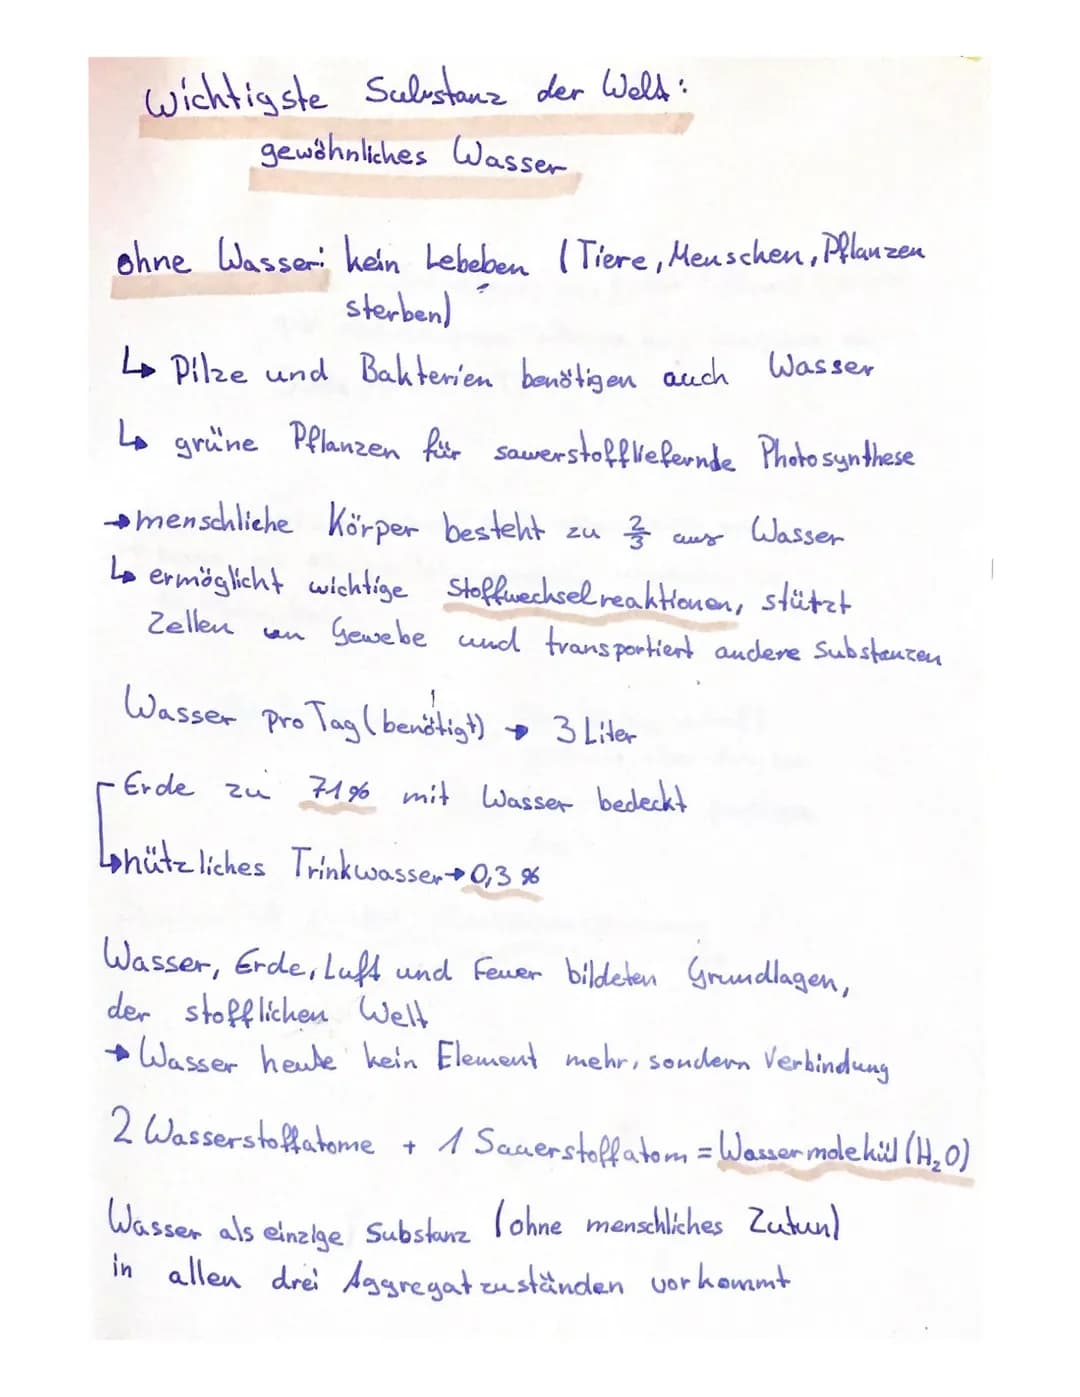 Wichtigste Substanz der Welt:
gewöhnliches Wasser
ohne Wasser: kein Lebeben (Tiere, Menschen, Pflanzen
sterben)
↳ Pilze und Bakterien benötigen auch Wasser
↳ grüne Pflanzen für sauerstoffliefernde Photosynthese
→ menschliche Körper besteht zu 2/3 aus Wasser
↳ ermöglicht wichtige Stoffwechselreaktionen, stützt
Zellen un Gewebe und transportiert andere Substanzen
Wasser pro Tag (benötigt) → 3 Liter
Erde zu 71% mit Wasser bedeckt
↳ nützliches Trinkwasser → 0,3 %
Wasser, Erde, Luft und Feuer bildeten Grundlagen,
der stofflichen Welt
→ Wasser heute kein Element mehr, sondern Verbindung
2 Wasserstoffatome + 1 Sauerstoffatom = Wassermolekül (H₂O)
Wasser als einzige Substanz (ohne menschliches Zutun)
in allen drei Aggregatzuständen vorkommt